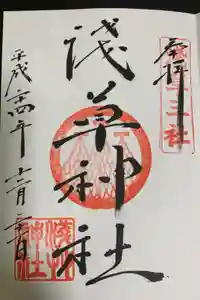 奉拝
三社
浅草神社
平成二十四年十二月三十日
浅草神社